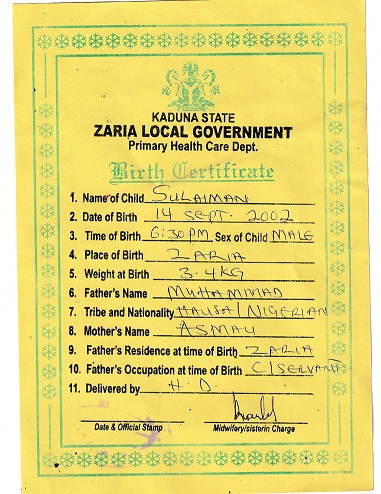 KADUNA STATE
ZARIA LOCAL GOVERNMENT
Primary Health Care Dept.
Birth Certificate
1. Name of Child SULAIMAN
2. Date of Birth 14 SEPT. 2002
3. Time of Birth 6:30PM Sex of Child MALE
4. Place of Birth ZARIA
5. Weight at Birth 3.4KG
6. Father's Name MUHAMMAD
7. Tribe and Nationality HAUSA/NIGERIAN
8. Mother's Name ASMAU
9. Father's Residence at time of Birth ZARIA
10. Father's Occupation at time of Birth C/SERVANT
11. Delivered by H.D.
Date & Official Stamp Midwifery/sisterin Charge